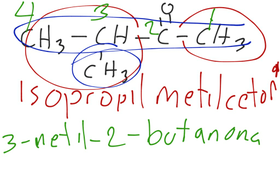 4 3 O
CH3 - CH - C 2 - CH3 1
CH3
Isopropil metilcetona
3-netil-2-butanona